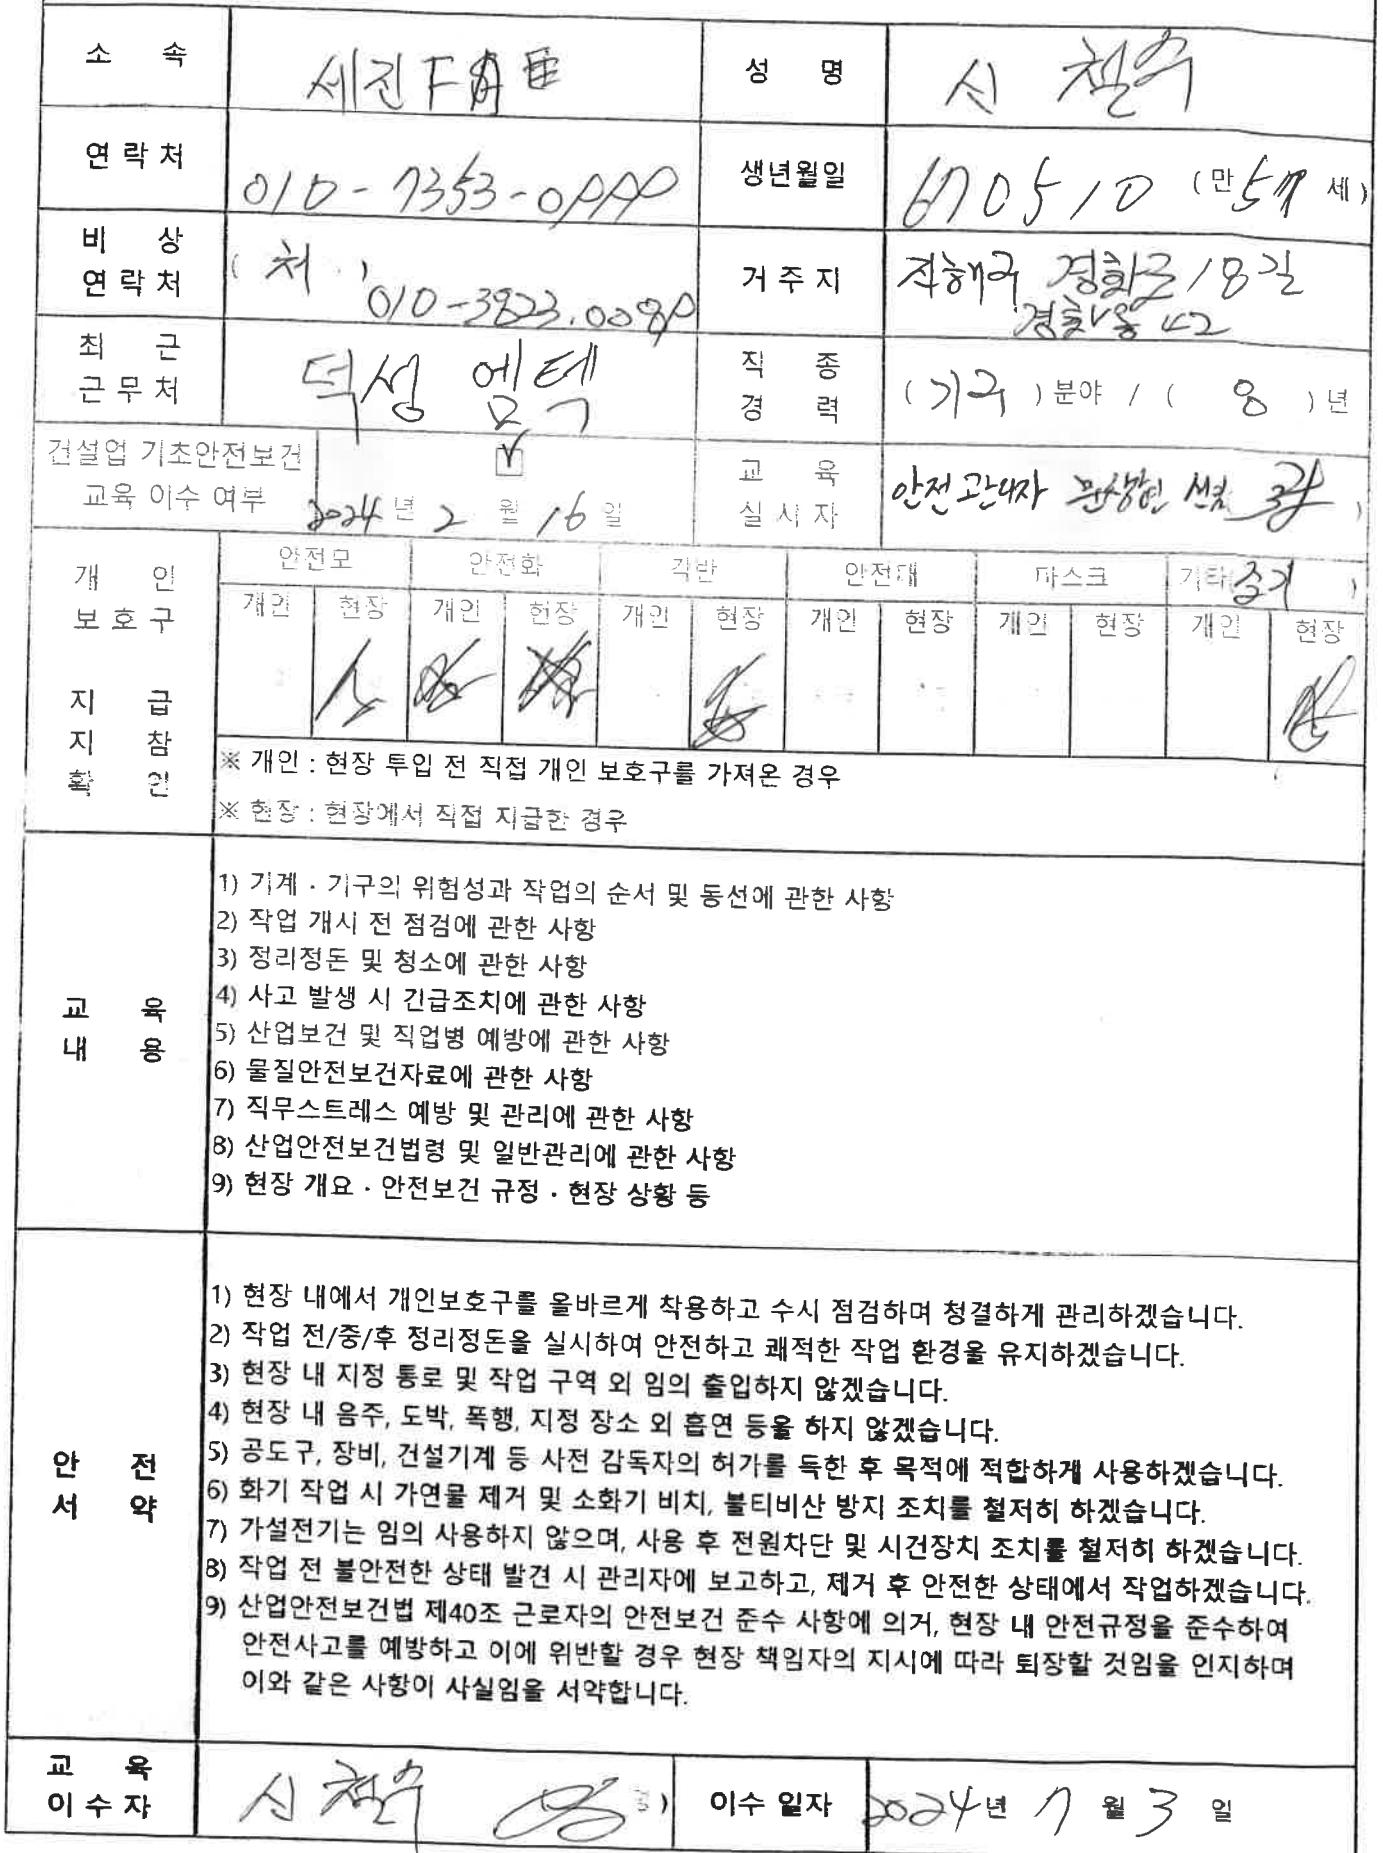 소 속 세진FA 성 명 신 철수
연 락 처 010-7353-0999 생년월일 670510 (만 57 세)
비 상 연 락 처 (처) 010-3823.0089 거 주 지 진해구 경화로 18길 42
최 근 근 무 처 덕성 엠텍 직 종 경 력 (기구) 분야 / ( 8 ) 년
건설업 기초안전보건 교육 이수 여부 2024 년 2 월 16 일 교 육 실 시 자 안전관리자
개 인 보 호 구 지 급 지 참 확 인
안전모 안전화 각반 안전대 마스크 기타( )
개인 현장 개인 현장 개인 현장 개인 현장 개인 현장 개인 현장
※ 개인 : 현장 투입 전 직접 개인 보호구를 가져온 경우
※ 현장 : 현장에서 직접 지급한 경우
교 육 내 용
1) 기계 · 기구의 위험성과 작업의 순서 및 동선에 관한 사항
2) 작업 개시 전 점검에 관한 사항
3) 정리정돈 및 청소에 관한 사항
4) 사고 발생 시 긴급조치에 관한 사항
5) 산업보건 및 직업병 예방에 관한 사항
6) 물질안전보건자료에 관한 사항
7) 직무스트레스 예방 및 관리에 관한 사항
8) 산업안전보건법령 및 일반관리에 관한 사항
9) 현장 개요 · 안전보건 규정 · 현장 상황 등
안 전 서 약
1) 현장 내에서 개인보호구를 올바르게 착용하고 수시 점검하며 청결하게 관리하겠습니다.
2) 작업 전/중/후 정리정돈을 실시하여 안전하고 쾌적한 작업 환경을 유지하겠습니다.
3) 현장 내 지정 통로 및 작업 구역 외 임의 출입하지 않겠습니다.
4) 현장 내 음주, 도박, 폭행, 지정 장소 외 흡연 등을 하지 않겠습니다.
5) 공도구, 장비, 건설기계 등 사전 감독자의 허가를 득한 후 목적에 적합하게 사용하겠습니다.
6) 화기 작업 시 가연물 제거 및 소화기 비치, 불티비산 방지 조치를 철저히 하겠습니다.
7) 가설전기는 임의 사용하지 않으며, 사용 후 전원차단 및 시건장치 조치를 철저히 하겠습니다.
8) 작업 전 불안전한 상태 발견 시 관리자에 보고하고, 제거 후 안전한 상태에서 작업하겠습니다.
9) 산업안전보건법 제40조 근로자의 안전보건 준수 사항에 의거, 현장 내 안전규정을 준수하여
안전사고를 예방하고 이에 위반할 경우 현장 책임자의 지시에 따라 퇴장할 것임을 인지하며
이와 같은 사항이 사실임을 서약합니다.
교 육 이 수 자 신 철수 이수 일자 2024 년 7 월 3 일